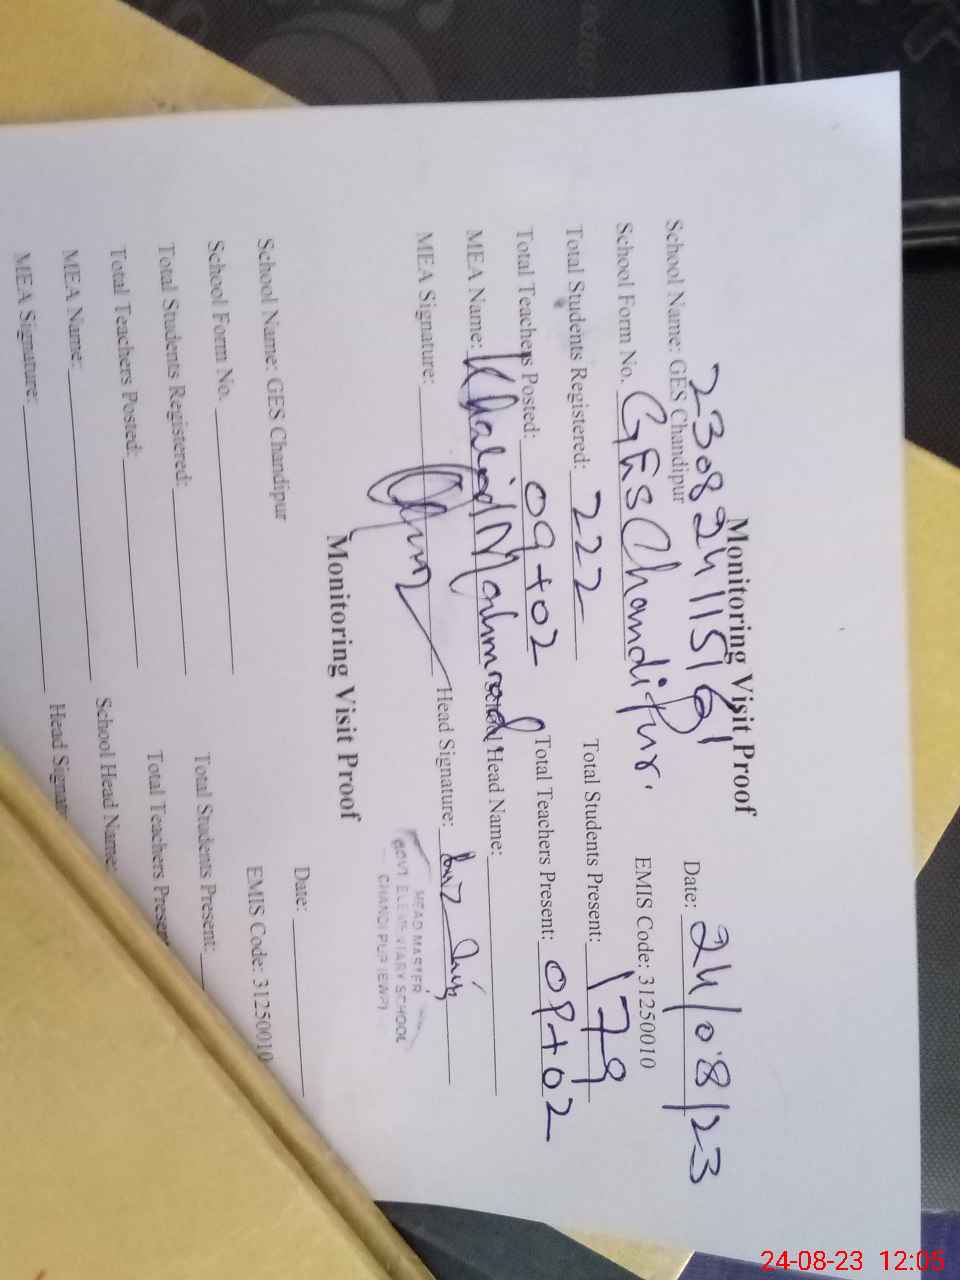 Monitoring Visit Proof
School Name: GES Chandipur Date: 24/08/23
School Form No. GES Chandipur. EMIS Code: 31250010
Total Students Registered: 222 Total Students Present: 179
Total Teachers Posted: 09+02 Total Teachers Present: 09+02
MEA Name: Khalid Mahmood Head Name:
MEA Signature: Head Signature:
HEAD MASTER
GOVT ELEMENTARY SCHOOL
CHANDIPUR (BWP)
Monitoring Visit Proof
School Name: GES Chandipur Date:
School Form No. EMIS Code: 31250010
Total Students Registered: Total Students Present:
Total Teachers Posted: Total Teachers Present
MEA Name: School Head Name:
MEA Signature: Head Signatu
24-08-23 12:05